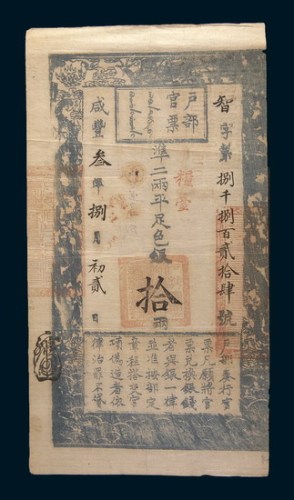 户部
官票
智字第捌千捌百貳拾肆號
準二兩平足色銀拾兩
咸豐叁年捌月初貳日
糧臺
户部奏行官
票凡願將官
票兌換銀錢
者與銀一律
並准按部定
章程搭交官
項偽造者依
律治罪不貸